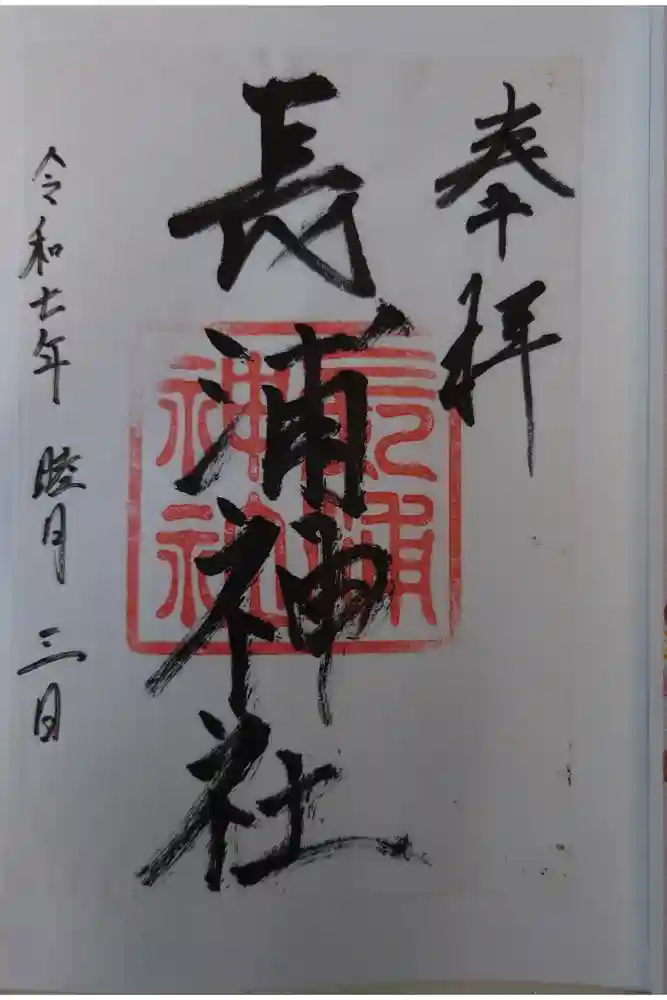 奉拝
長浦神社
長浦神社
令和七年 睦月 三日